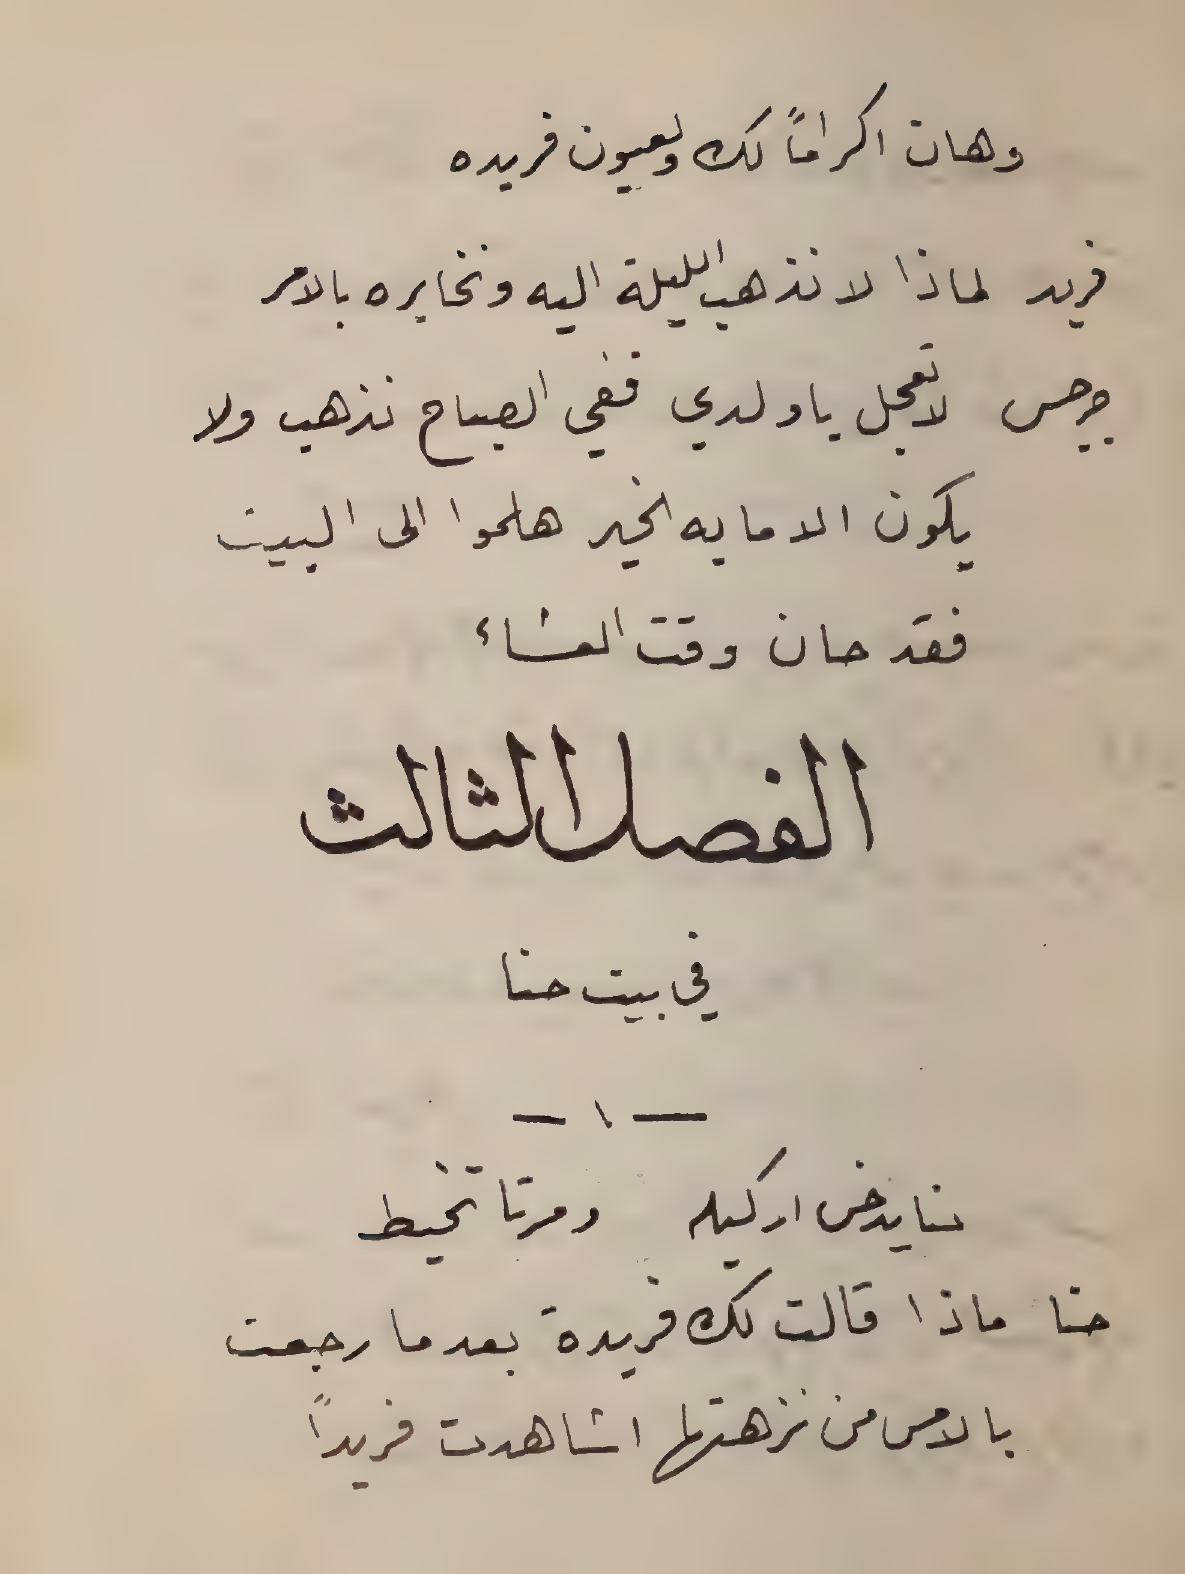 وهان اكراماً لك ولعيون فريده
فريد لماذا لا نذهب الليلة اليه ونخابره بالامر
جرجس لا تعجل يا ولدي ففي الصباح نذهب ولا
يكون الا ما به الخير هلموا الى البيت
فقد حان وقت العشاء
الفصل الثالث
في بيت حنا
— ١ —
حنا يدخن اركيله ومرتا تخيط
حنا ماذا قالت لك فريدة بعد ما رجعت
بالامس من نزهتها اشاهدت فريداً